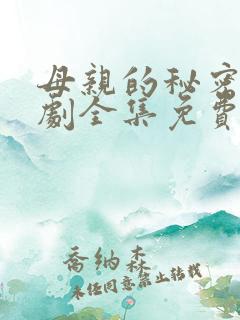 母親的秘密
劇全集免費
喬納森
未经同意禁止转载